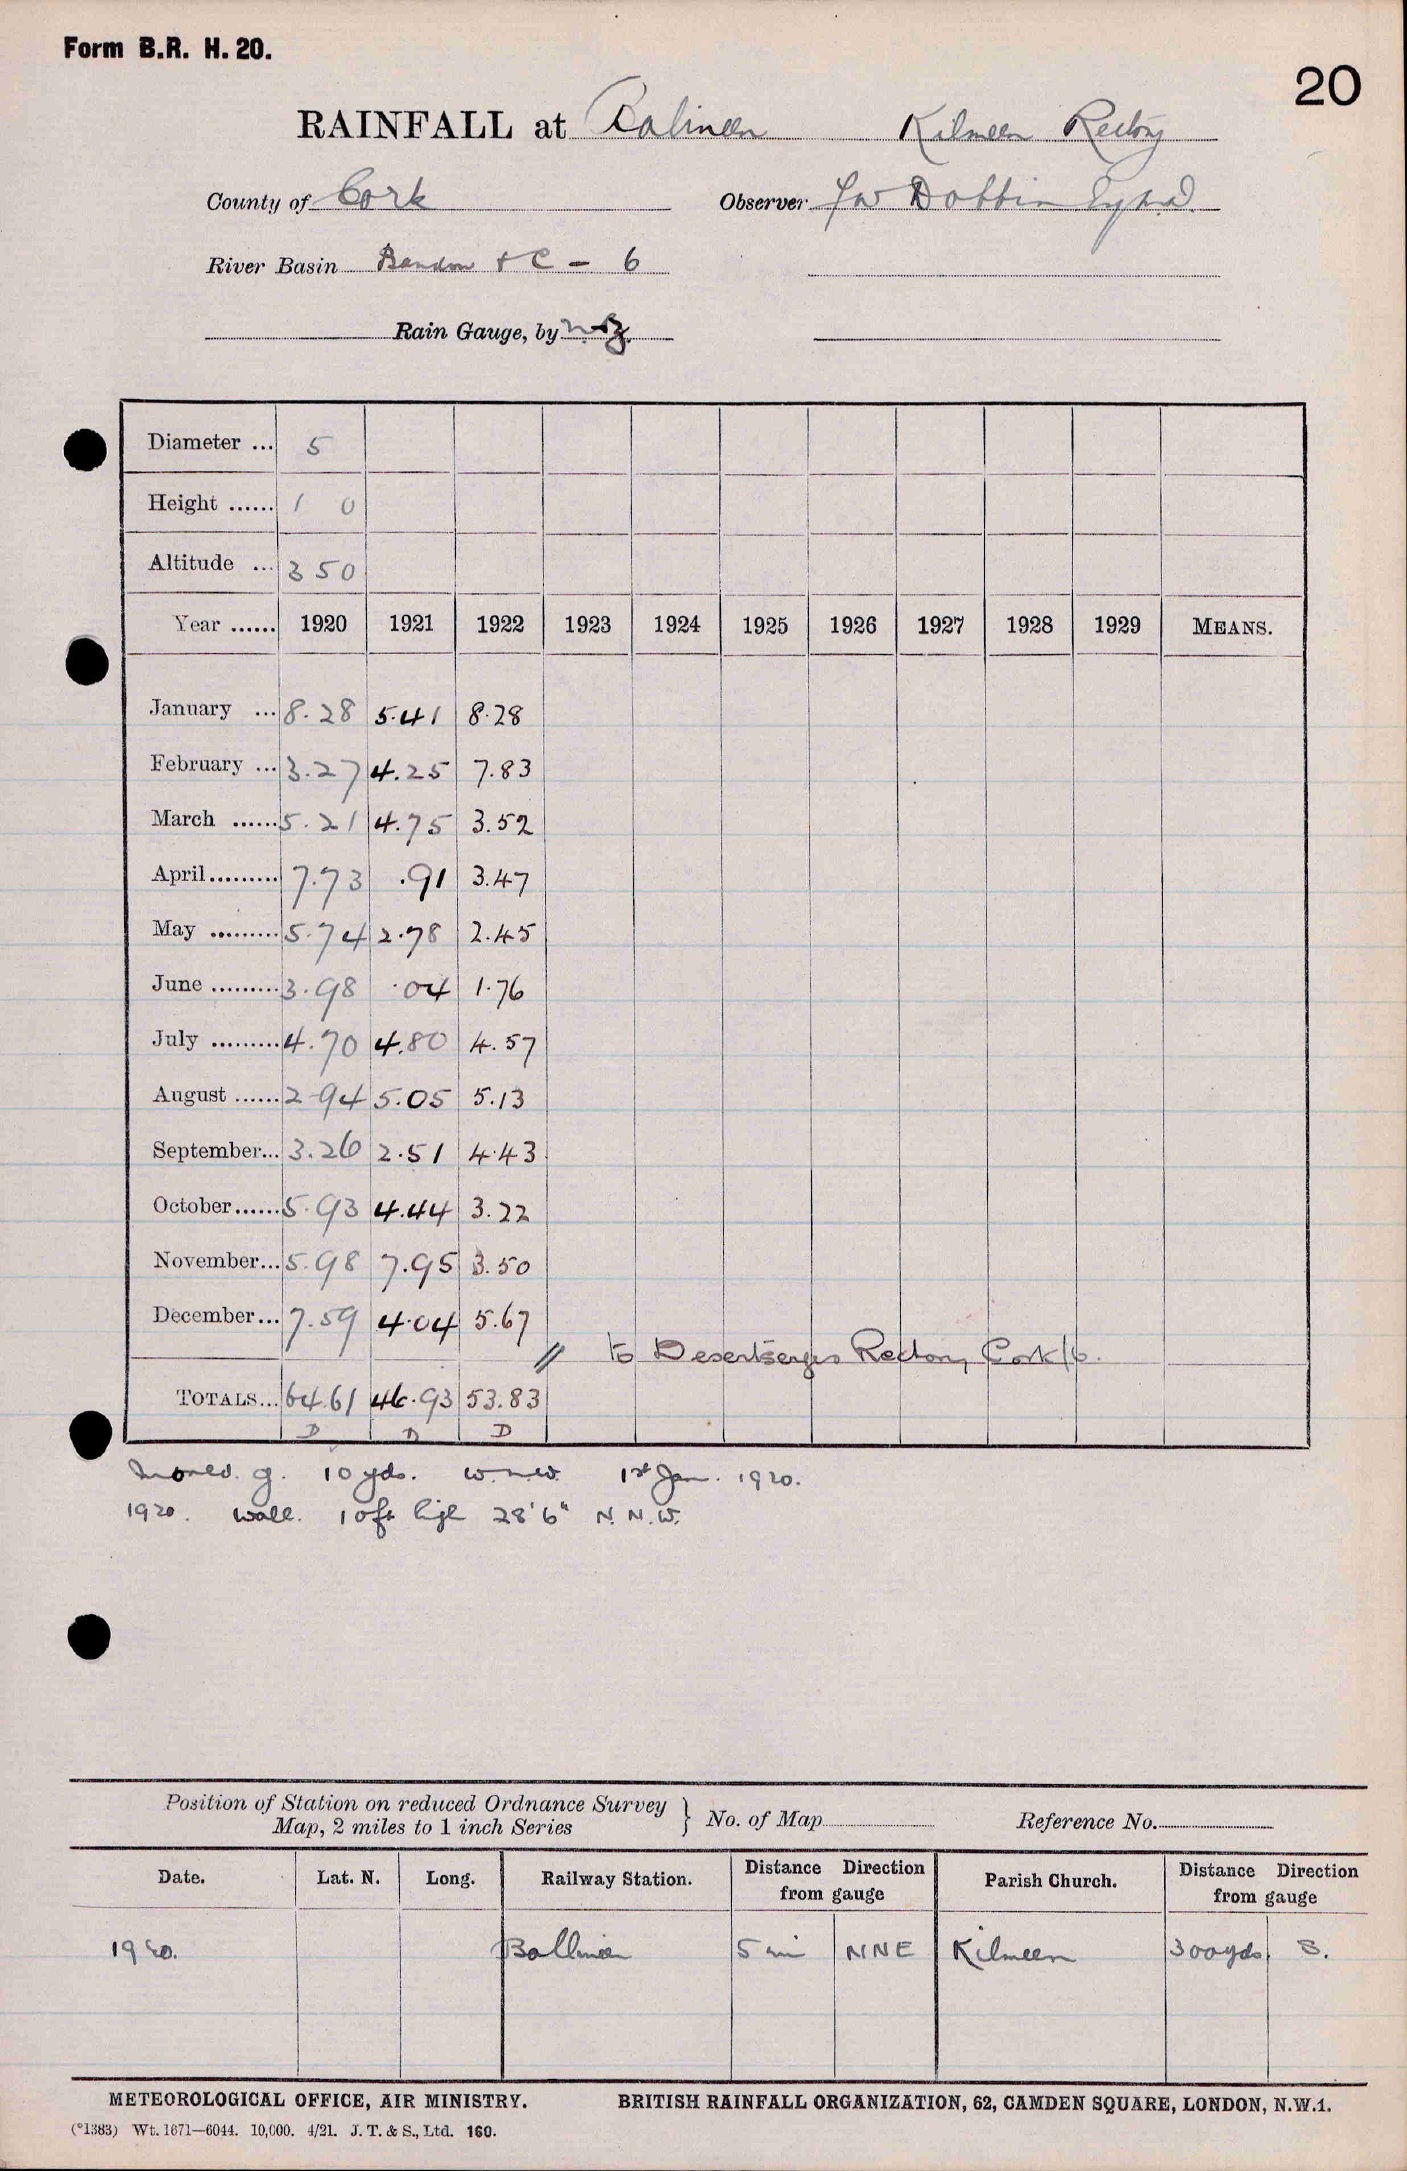 Form B.R. H. 20.
20
RAINFALL at Balineen Kilmeen Rectory
County of Cork Observer Dobbin
River Basin Bandon + C - 6
Rain Gauge, by
Diameter ... 5
Height ...... 1 0
Altitude ... 350
Year ...... 1920 1921 1922 1923 1924 1925 1926 1927 1928 1929 MEANS.
January ... 8.28 5.41 8.28
February ... 3.27 4.25 7.83
March ...... 5.21 4.75 3.52
April ......... 7.73 .91 3.47
May ......... 5.74 2.78 2.45
June ......... 3.98 .04 1.76
July ......... 4.70 4.80 4.57
August ...... 2.94 5.05 5.13
September... 3.26 2.51 4.43
October ...... 5.93 4.44 3.22
November... 5.98 7.95 3.50
December... 7.59 4.04 5.67
// to Desertserges Rectory, Cork/6.
TOTALS... 64.61 46.93 53.83
D D D
Moved g. 10 yds. W.N.W. 1st Jan. 1920.
1920. Wall. 10ft high 28'6" N.N.W.
Position of Station on reduced Ordnance Survey
Map, 2 miles to 1 inch Series } No. of Map Reference No.
Date. Lat. N. Long. Railway Station. Distance Direction from gauge Parish Church. Distance Direction from gauge
1920. Ballineen 5 mi NNE Kilmeen 300yds S.
METEOROLOGICAL OFFICE, AIR MINISTRY. BRITISH RAINFALL ORGANIZATION, 62, CAMDEN SQUARE, LONDON, N.W.1.
(*1383) Wt. 1671—6044. 10,000. 4/21. J. T. & S., Ltd. 160.